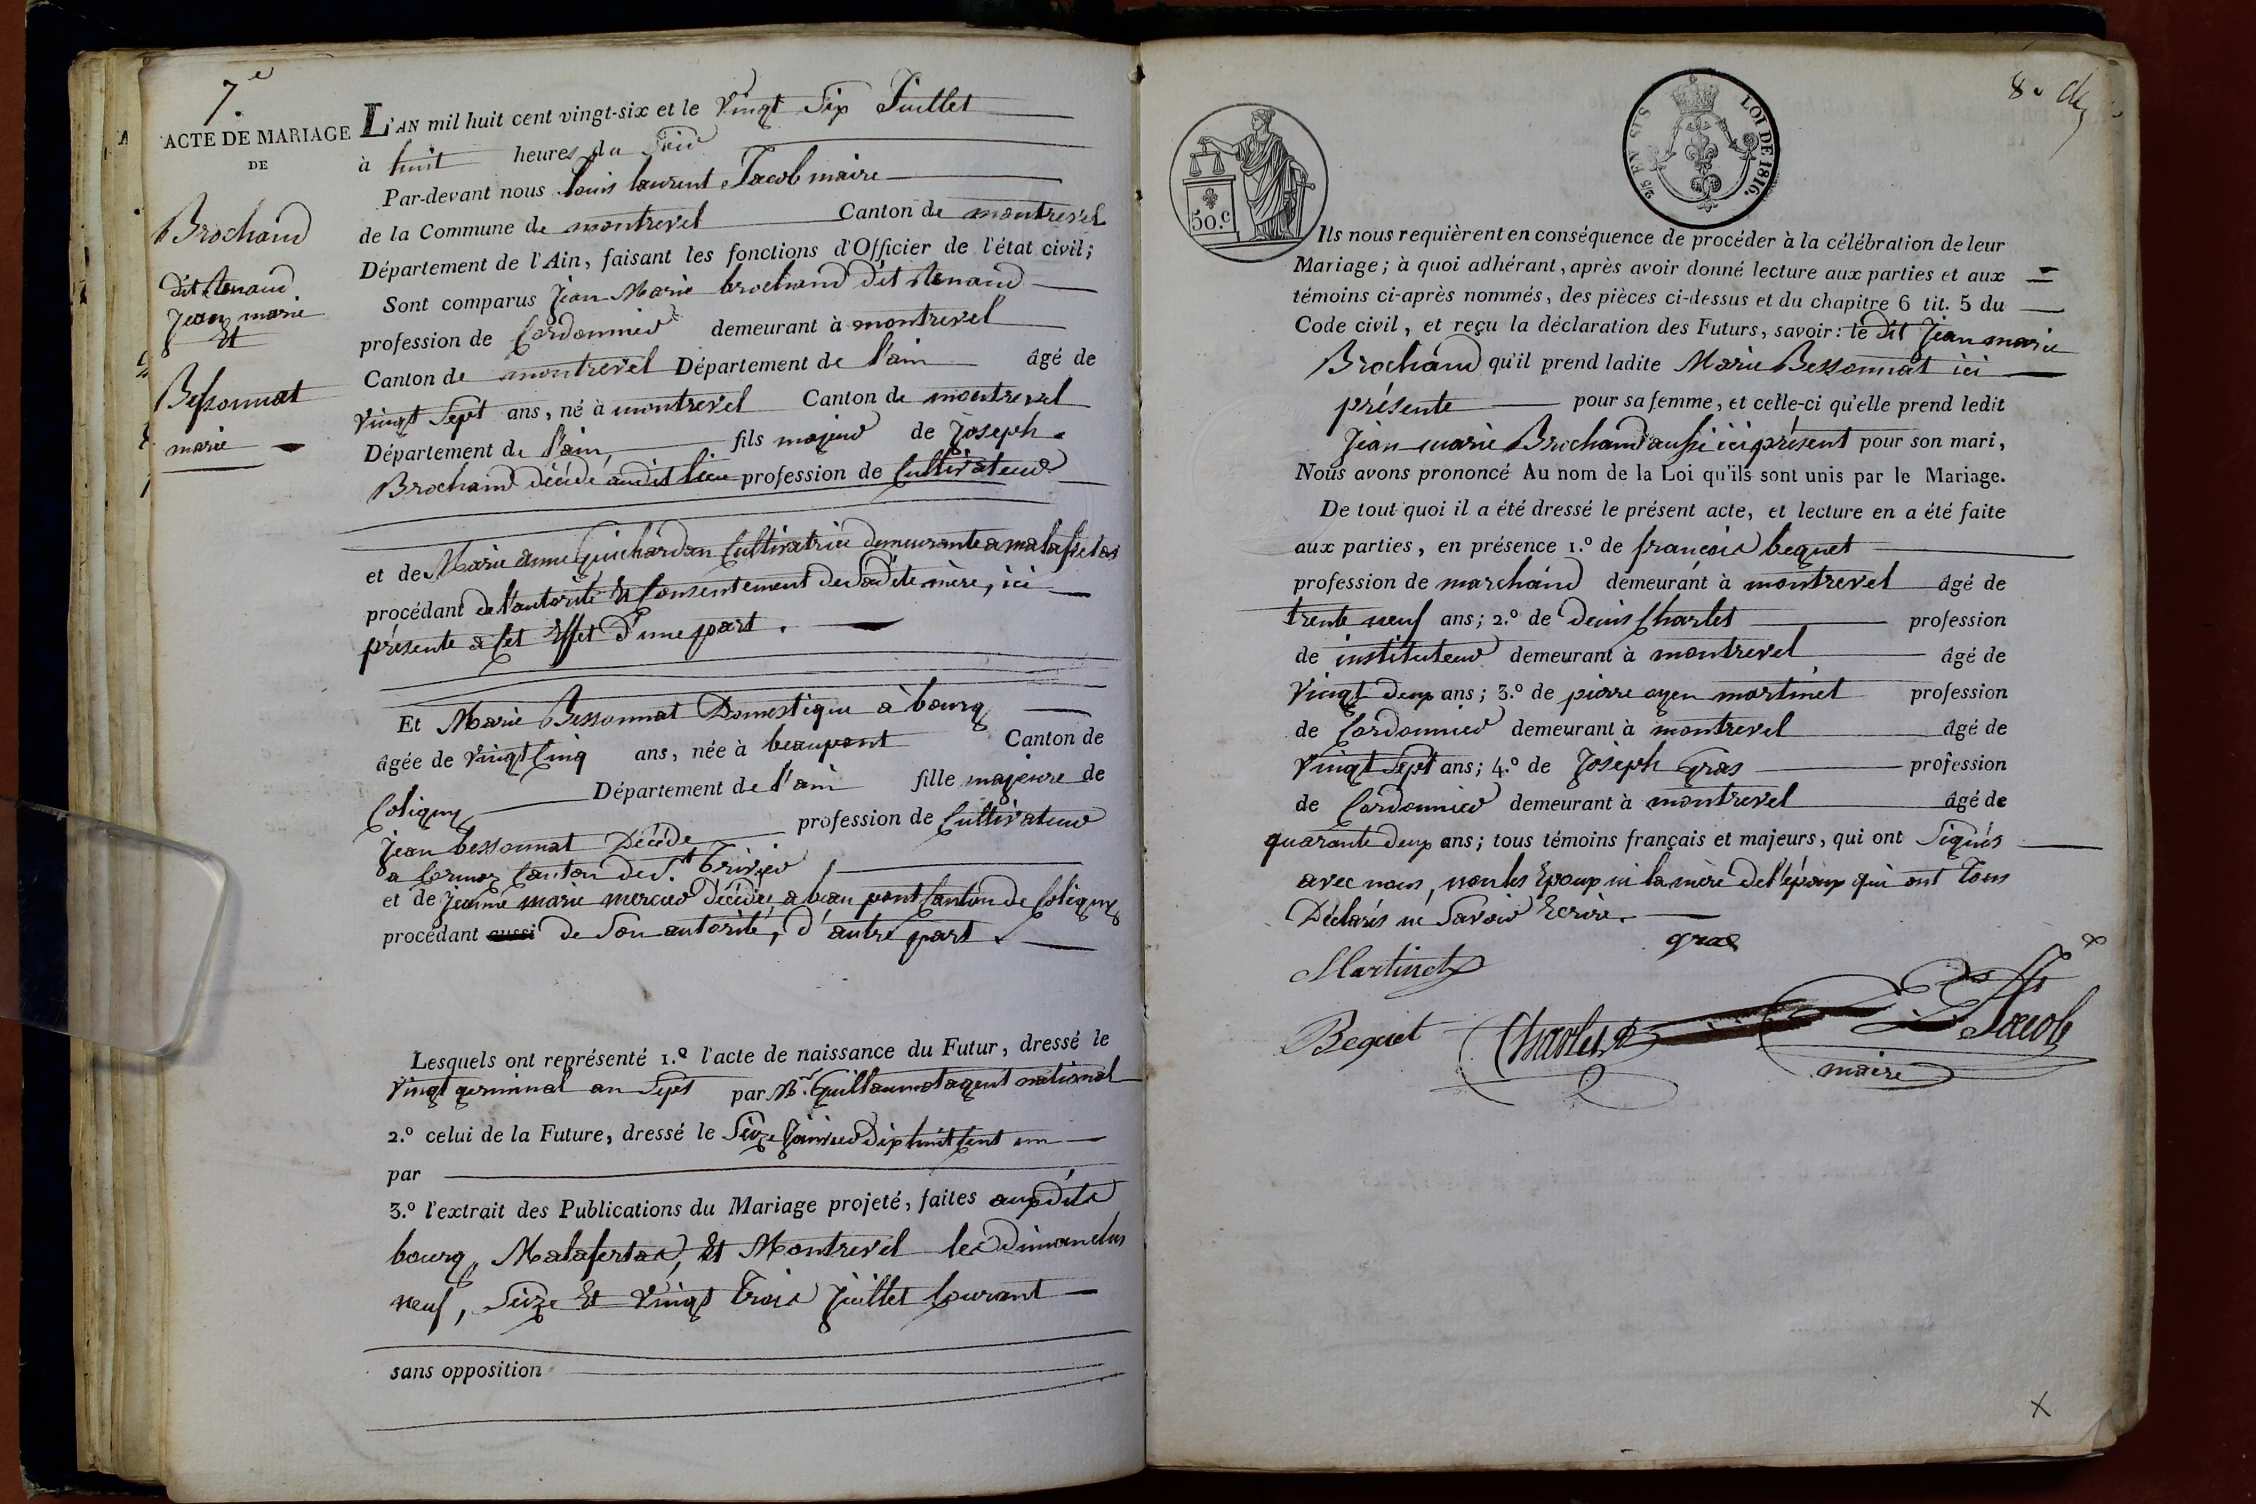 7.e
ACTE DE MARIAGE
DE
Brochand
dit Renaud
Jean marie
Et
Bessonnat
marie
L'AN mil huit cent vingt-six et le Vingt Six Juillet
à huit heures du Soir
Par-devant nous Louis laurent Jacob maire
de la Commune de montrevel Canton de montrevel
Département de l'Ain, faisant les fonctions d'Officier de l'état civil;
Sont comparus Jean Marie brochand dit Renaud
profession de Cordonnier demeurant à montrevel
Canton de montrevel Département de l'ain âgé de
Vingt Sept ans, né à montrevel Canton de montrevel
Département de l'ain, fils majeur de Joseph
Brochand décédé audit lieu profession de Cultivateur
et de Marie anne Guichardan Cultivatrice demeurante a malafretas
procédant de l'autorité Et Consentement de Sadite mère, ici
présente a Cet Effet d'une part.
Et Marie Bessonnat Domestique à bourg
âgée de Vingt Cinq ans, née à beaupont Canton de
Coligny Département de l'ain fille majeure de
Jean bessonnat Décédé profession de Cultivateur
a Cormoz Canton de St. Trivier
et de Jeanne marie mercier Décédée a beaupont Canton de Coligny
procédant aussi de Son autorité, d'autre part.
Lesquels ont représenté 1.º l'acte de naissance du Futur, dressé le
Vingt germinal an Sept par Mr. Guillaumot agent national
2.º celui de la Future, dressé le Seize Janvier dix huit Cent un
par
3.º l'extrait des Publications du Mariage projeté, faites auxdits
bourg, Malafertas, Et Montrevel les Dimanches
neuf, Seize Et Vingt trois Juillet Courant
sans opposition
8e
50.c
25 EN SUS
LOI DE 1816.
Ils nous requièrent en conséquence de procéder à la célébration de leur
Mariage; à quoi adhérant, après avoir donné lecture aux parties et aux
témoins ci-après nommés, des pièces ci-dessus et du chapitre 6 tit. 5 du
Code civil, et reçu la déclaration des Futurs, savoir: le dit Jean marie
Brochand qu'il prend ladite Marie Bessonnat ici
présente pour sa femme, et celle-ci qu'elle prend ledit
Jean marie Brochand aussi ici présent pour son mari,
Nous avons prononcé Au nom de la Loi qu'ils sont unis par le Mariage.
De tout quoi il a été dressé le présent acte, et lecture en a été faite
aux parties, en présence 1.º de françois bequet
profession de marchand demeurant à montrevel âgé de
trente neuf ans; 2.º de denis Charlet profession
de instituteur demeurant à montrevel âgé de
Vingt deux ans; 3.º de pierre ayen martinet profession
de Cordonnier demeurant à montrevel âgé de
Vingt Sept ans; 4.º de Joseph Gras profession
de Cordonnier demeurant à montrevel âgé de
quarante deux ans; tous témoins français et majeurs, qui ont Signés
avec nous, non les Epoux ni la mère de l'époux qui ont Tous
Déclarés ne Savoir Ecrire.
gras
Martinet
Bequet Charlet Jacob
maire
X